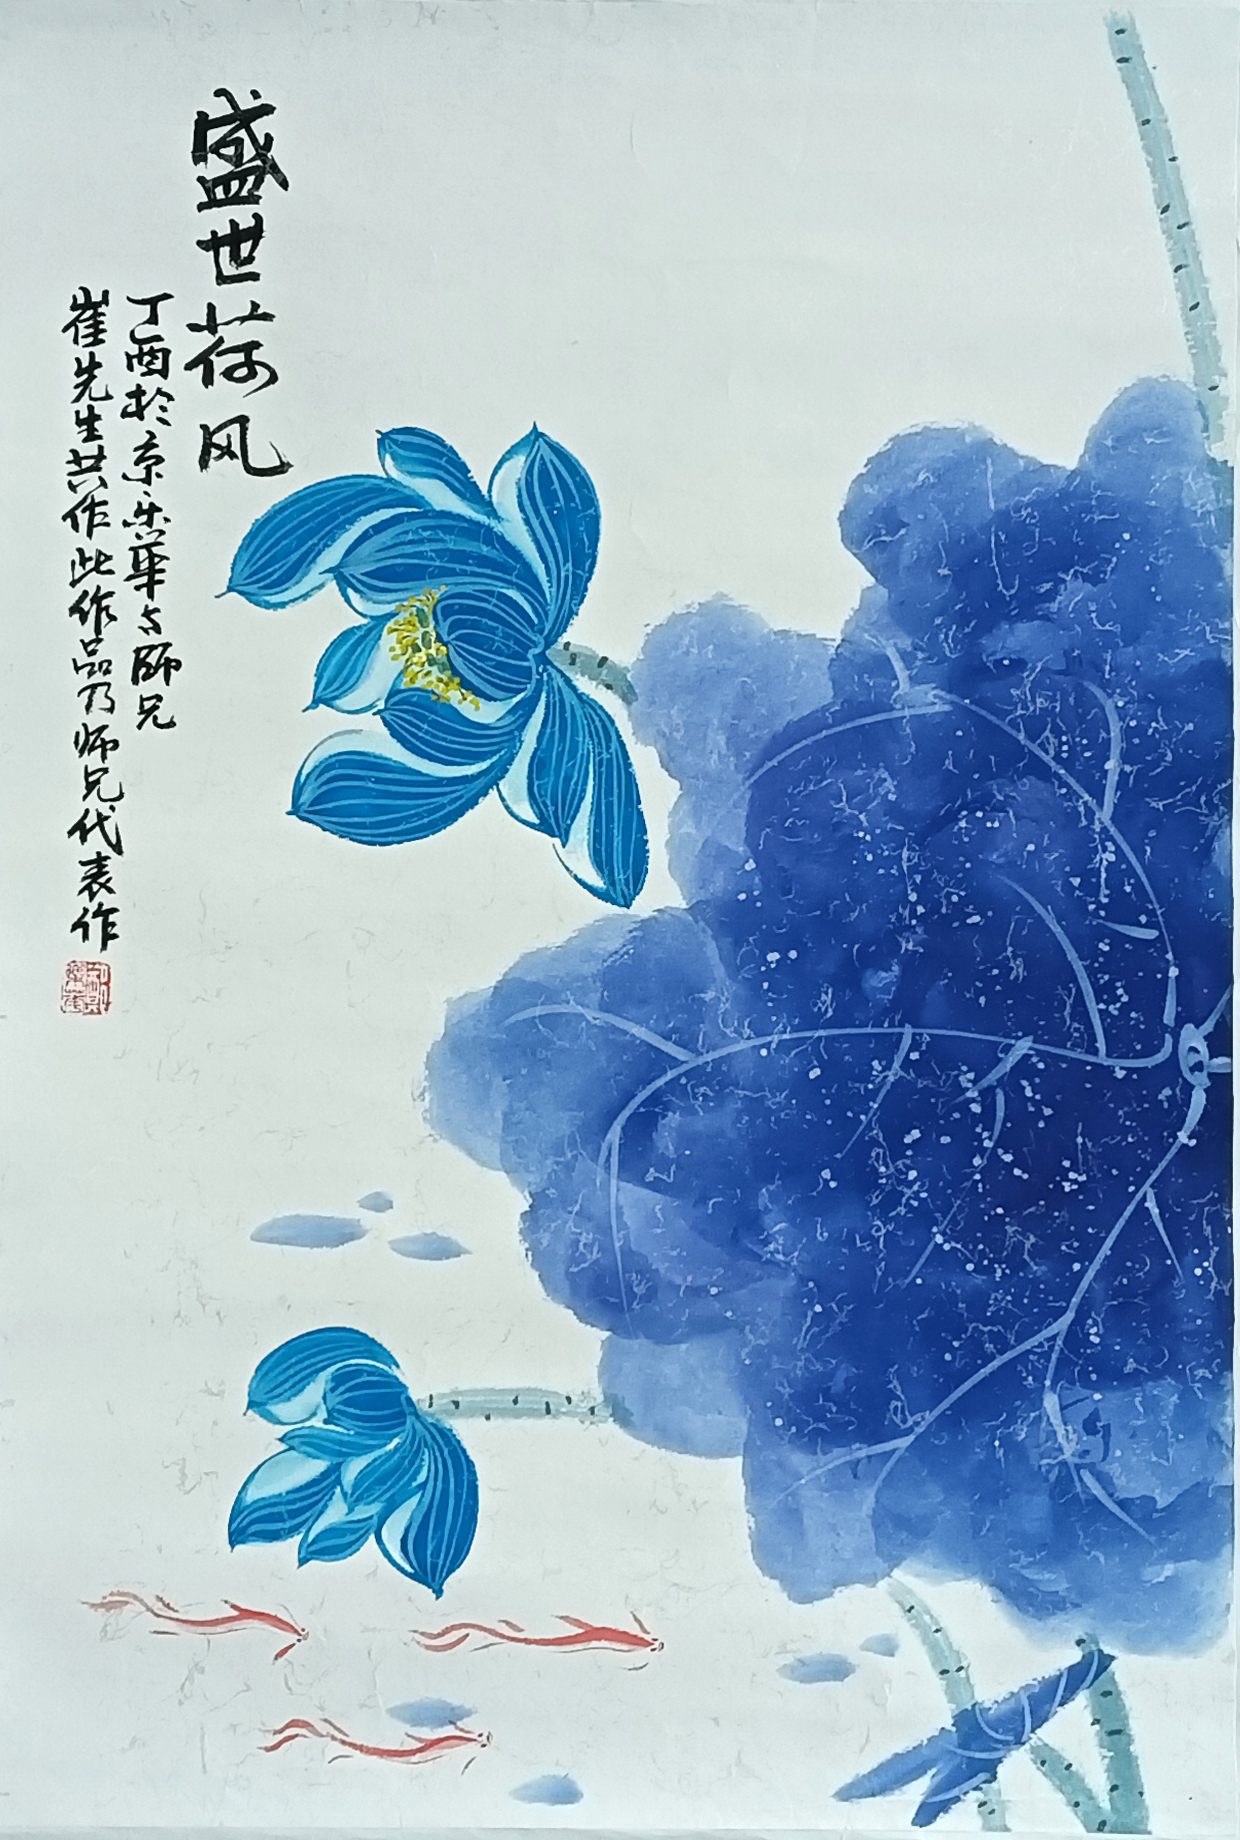 盛世荷风
丁酉於京乐华与師兄
崔先生共作此作品乃师兄代表作